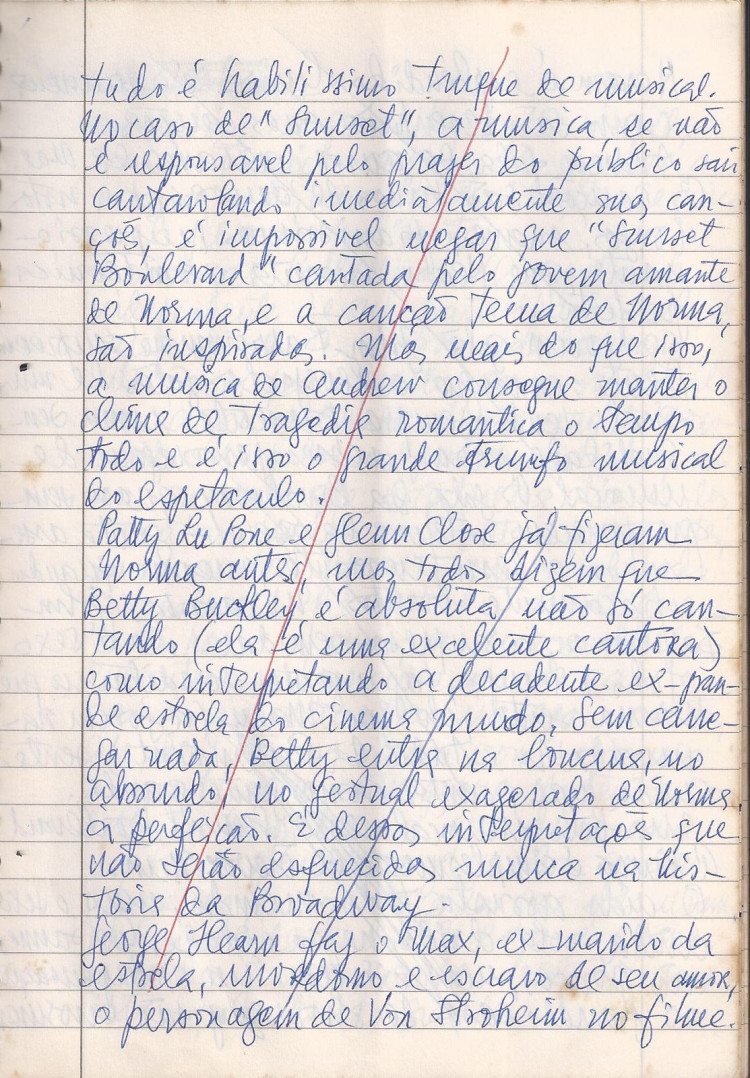 tudo é habilissimo truque de musical.
No caso de "Sunset", a musica, se não
é responsável pelo prazer do público sair
cantarolando imediatamente suas can-
ções, é impossivel negar que "Sunset
Boulevard" cantada pelo jovem amante
de Norma, e a canção tema de Norma,
são inspiradas. Mas mais do que isso,
a musica de Andrew consegue manter o
clima de tragedia romantica o tempo
todo e é isso o grande trunfo musical
do espetaculo.
Patty Lu Pone e Glenn Close já fizeram
Norma antes, mas todos dizem que
Betty Buckley é absoluta não só can-
tando (ela é uma excelente cantora)
como interpretando a decadente ex-gran-
de estrela do cinema mudo. Sem
nada, Betty entra na loucura, no
absurdo, no gestual exagerado de Norma
à perfeição. É dessas interpretações que
não serão esquecidas nunca na his-
tória da Broadway.
George Hearn faz o Max, ex-marido da
estrela, mordomo e escravo de seu amor,
o personagem de Von Stroheim no filme.